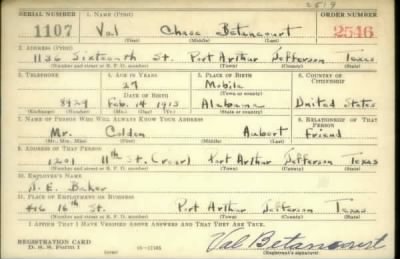 2519
SERIAL NUMBER 1. NAME (Print) ORDER NUMBER
1107 Val Chase Betancourt 2546
(First) (Middle) (Last)
2. ADDRESS (Print)
1136 Sixteenth St. Port Arthur Jefferson Texas
(Number and street or R. F. D. number) (Town) (County) (State)
3. TELEPHONE 4. AGE IN YEARS 5. PLACE OF BIRTH 6. COUNTRY OF CITIZENSHIP
27 Mobile
DATE OF BIRTH (Town or county)
8929 Feb. 14 1913 Alabama United States
(Exchange) (Number) (Mo.) (Day) (Yr.) (State or country)
7. NAME OF PERSON WHO WILL ALWAYS KNOW YOUR ADDRESS 8. RELATIONSHIP OF THAT PERSON
Mr. Colden Friend
(Mr., Mrs., Miss) (First) (Middle) (Last)
9. ADDRESS OF THAT PERSON
1201 11th St. (rear) Port Arthur Jefferson Texas
(Number and street or R. F. D. number) (Town) (County) (State)
10. EMPLOYER'S NAME
E. Baker
11. PLACE OF EMPLOYMENT OR BUSINESS
416 16th St. Port Arthur Jefferson Texas
(Number and street or R. F. D. number) (Town) (County) (State)
I AFFIRM THAT I HAVE VERIFIED ABOVE ANSWERS AND THAT THEY ARE TRUE.
REGISTRATION CARD
D. S. S. Form 1
Val Betancourt
(Registrant's signature)